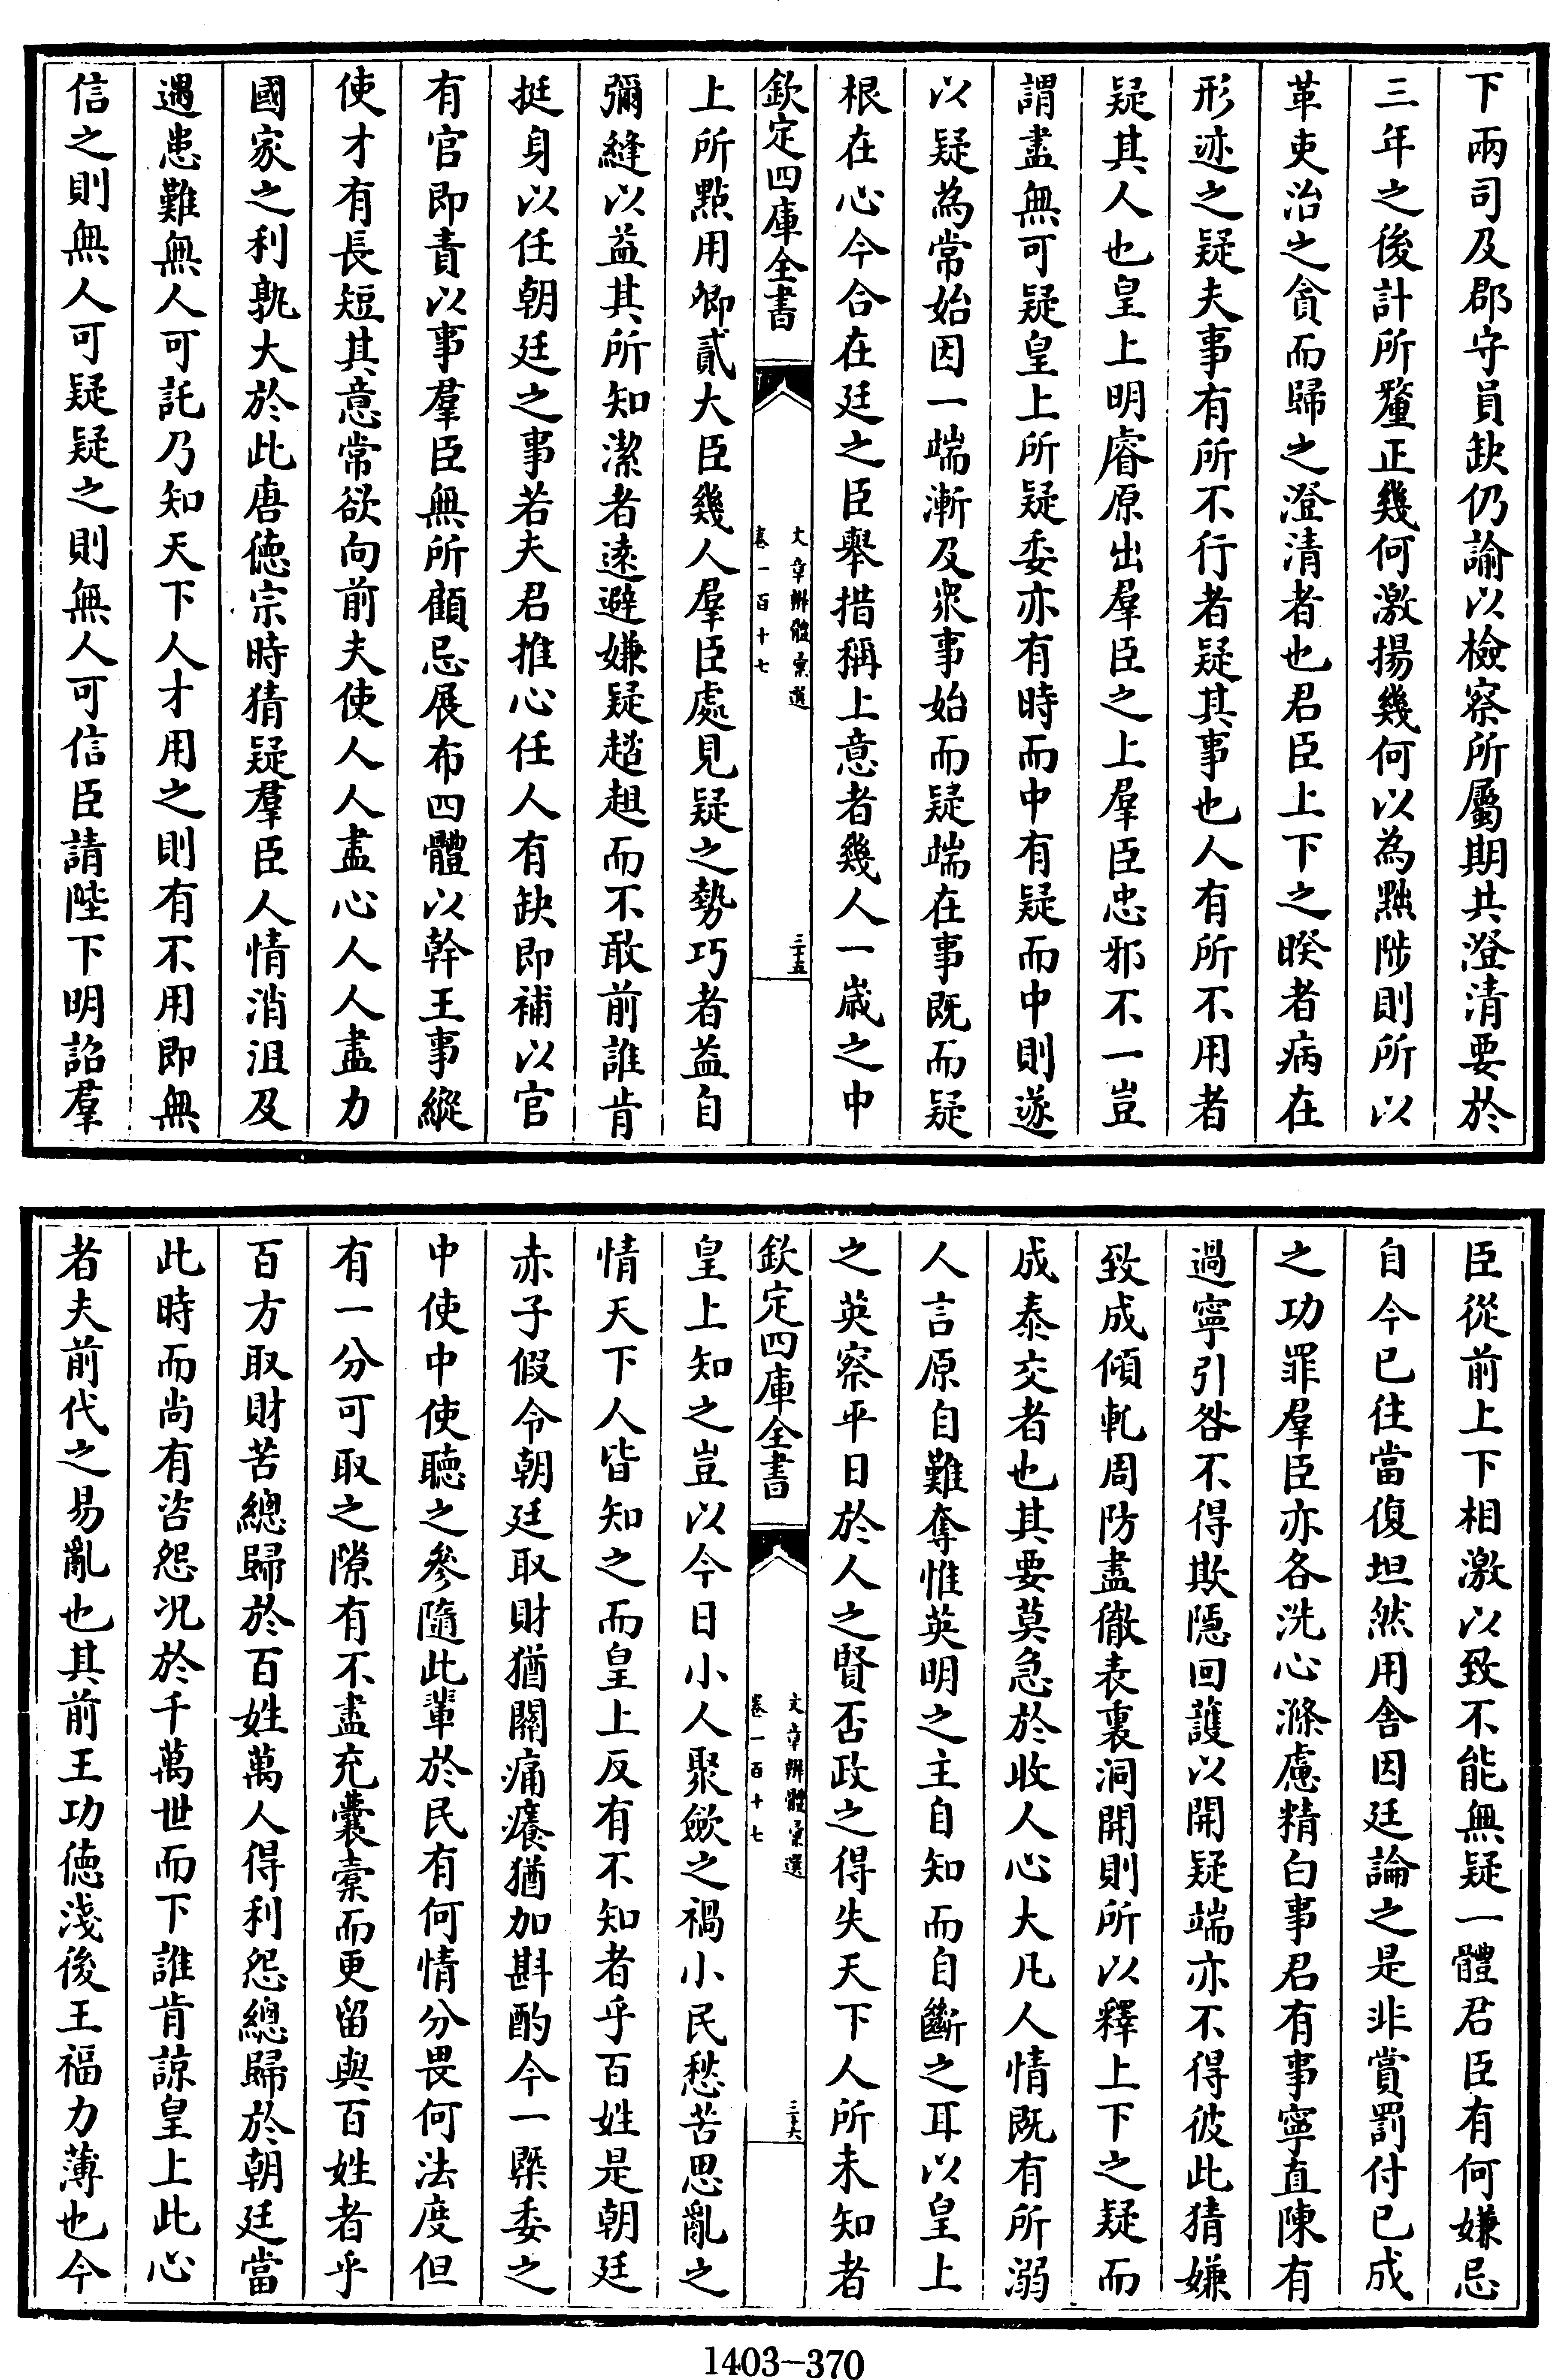 下兩司及郡守員缺仍諭以檢察所屬期共澄清要於
三年之後計所釐正幾何激揚幾何以為黜陟則所以
革吏治之貪而歸之澄清者也君臣上下之暌者病在
形迹之疑夫事有所不行者疑其事也人有所不用者
疑其人也皇上明睿原出羣臣之上羣臣忠邪不一豈
謂盡無可疑皇上所疑委亦有時而中有疑而中則遂
以疑為常始因一端漸及衆事始而疑端在事既而疑
根在心今合在廷之臣舉措稱上意者幾人一嵗之中
欽定四庫全書
文章辨體彙選
卷一百十七
三十五
上所點用卿貳大臣幾人羣臣處見疑之勢巧者益自
彌縫以益其所知潔者遠避嫌疑趑趄而不敢前誰肯
挺身以任朝廷之事若夫君推心任人有缺即補以官
有官即責以事羣臣無所顧忌展布四體以幹王事縱
使才有長短其意常欲向前夫使人人盡心人人盡力
國家之利孰大於此唐徳宗時猜疑羣臣人情消沮及
遇患難無人可託乃知天下人才用之則有不用即無
信之則無人可疑疑之則無人可信臣請陛下明詔羣
臣從前上下相激以致不能無疑一體君臣有何嫌忌
自今已往當復坦然用舎因廷論之是非賞罰付已成
之功罪羣臣亦各洗心滌慮精白事君有事寧直陳有
過寧引咎不得欺隠回護以開疑端亦不得彼此猜嫌
致成傾軋周防盡徹表裏洞開則所以釋上下之疑而
成泰交者也其要莫急於收人心大凡人情既有所溺
人言原自難奪惟英明之主自知而自斷之耳以皇上
之英察平日於人之賢否政之得失天下人所未知者
欽定四庫全書
文章辨體彙選
卷一百十七
三十六
皇上知之豈以今日小人聚歛之禍小民愁苦思亂之
情天下人皆知之而皇上反有不知者乎百姓是朝廷
赤子假令朝廷取財猶關痛癢猶加斟酌今一槩委之
中使中使聴之參隨此輩於民有何情分畏何法度但
有一分可取之隙有不盡充囊橐而更留與百姓者乎
百方取財苦總歸於百姓萬人得利怨總歸於朝廷當
此時而尚有咨怨况於千萬世而下誰肯諒皇上此心
者夫前代之易亂也其前王功徳淺後王福力薄也今
1403-370